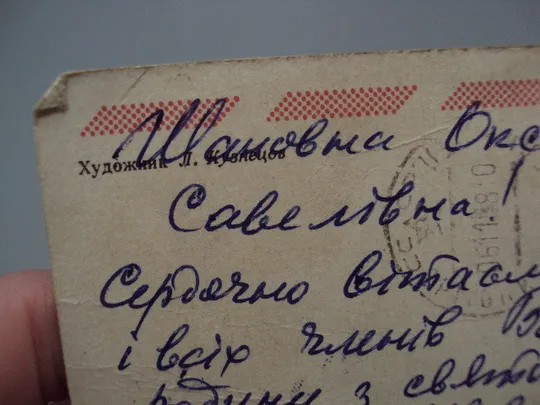 Художник Л. Кузнецов
Шановна Окс
Савелівна
Сердечно вітаєм
і всіх членів
родини з свято